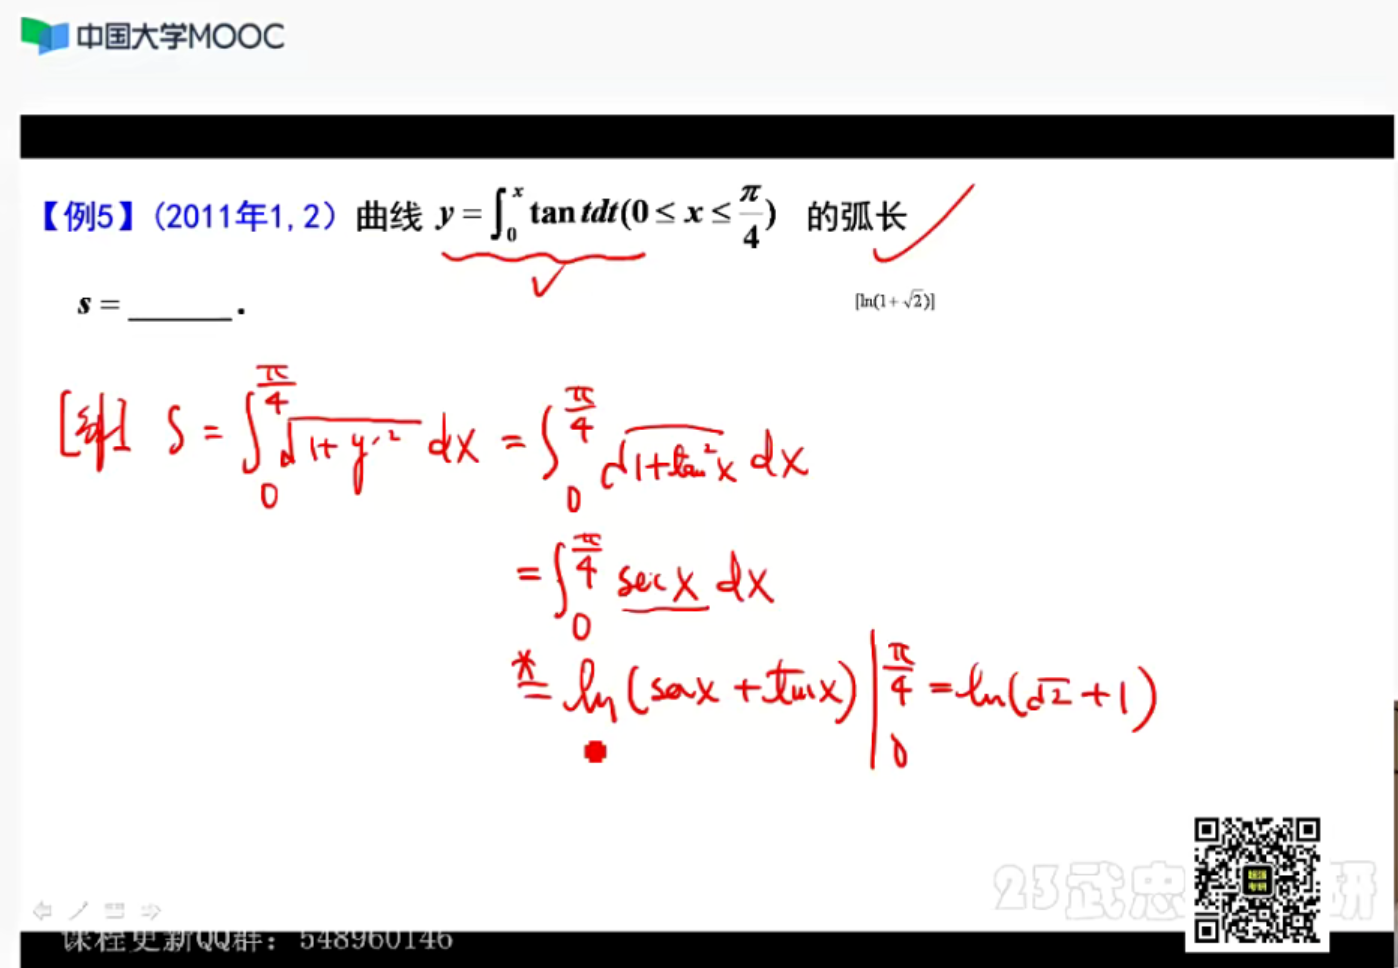 中国大学MOOC
【例5】(2011年1,2) 曲线 y = ∫₀ˣ tan tdt(0 ≤ x ≤ π/4) 的弧长
s = ______ .
[ln(1+√2)]
[解] S = ∫₀^(π/4) √(1+y'²) dx = ∫₀^(π/4) √(1+tan²x) dx
= ∫₀^(π/4) sec x dx
*= ln(secx + tanx) |₀^(π/4) = ln(√2+1)
23武忠 研
课程更新QQ群：548960146